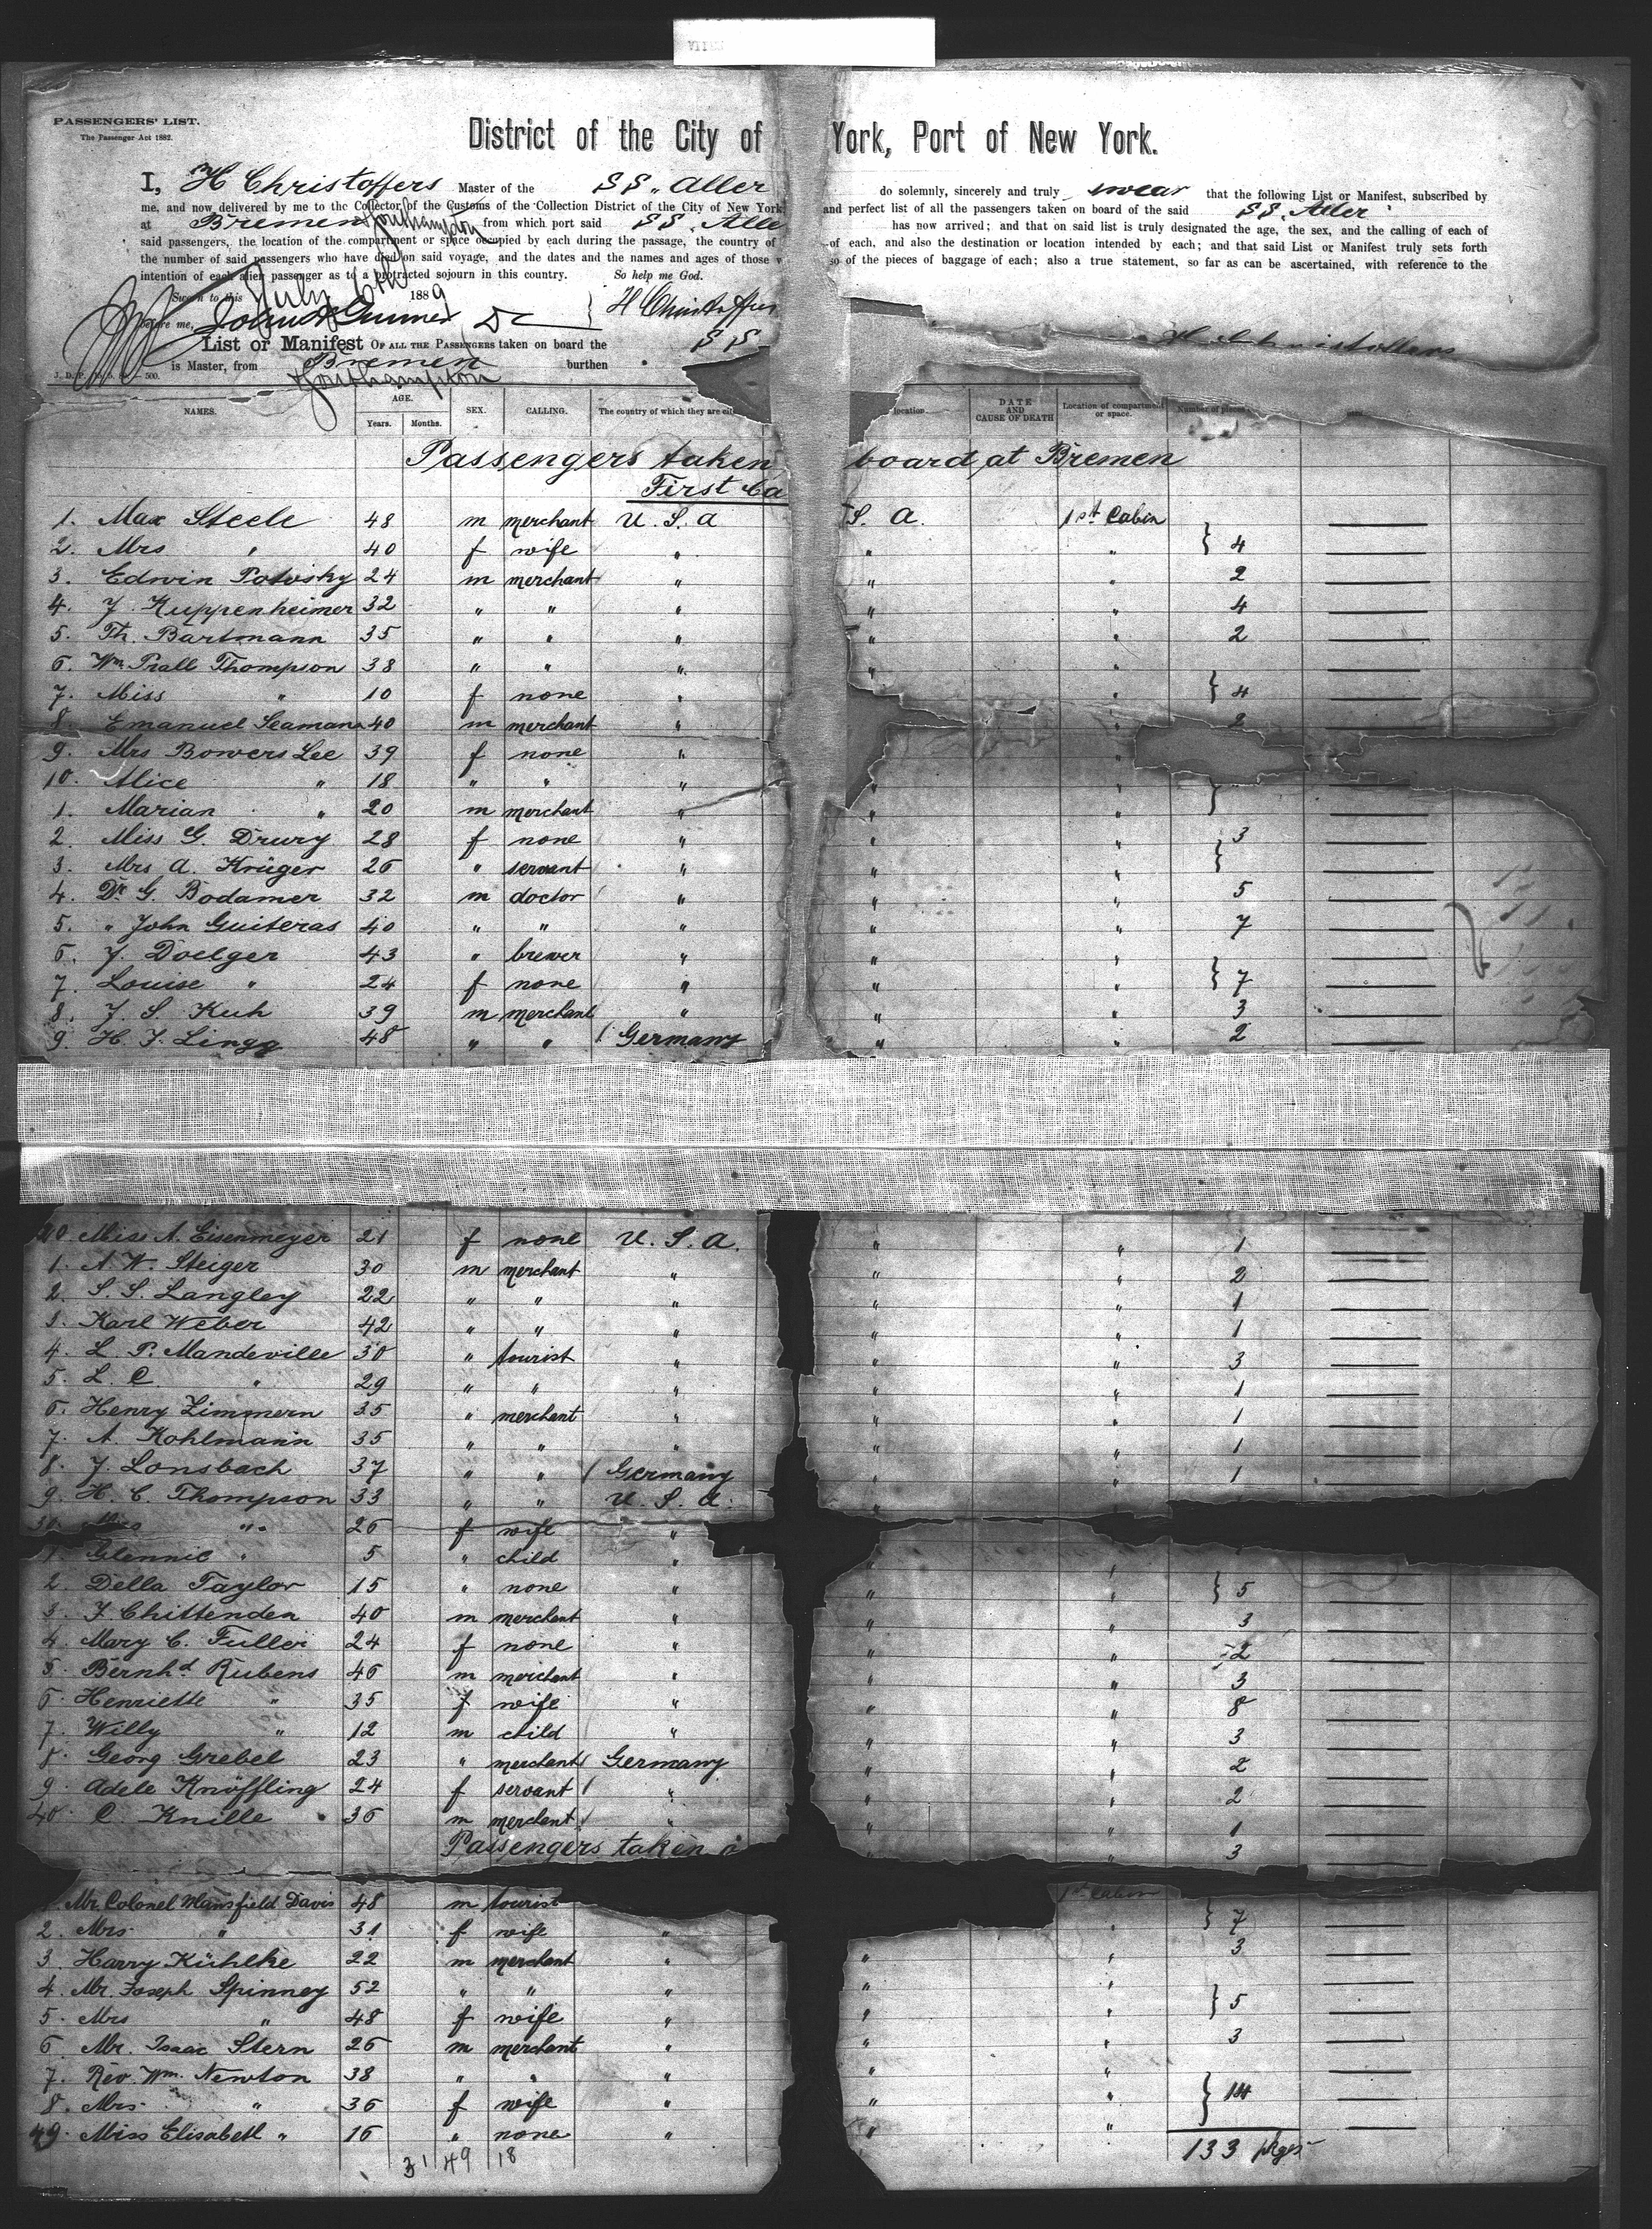 PASSENGERS' LIST.
The Passenger Act 1882.
District of the City of York, Port of New York.
I, H Christoffers Master of the S.S. Aller do solemnly, sincerely and truly swear that the following List or Manifest, subscribed by
me, and now delivered by me to the Collector of the Customs of the Collection District of the City of New York and perfect list of all the passengers taken on board of the said S.S. Aller
at Bremen Southampton from which port said S.S. Alle has now arrived; and that on said list is truly designated the age, the sex, and the calling of each of
said passengers, the location of the compartment or space occupied by each during the passage, the country of of each, and also the destination or location intended by each; and that said List or Manifest truly sets forth
the number of said passengers who have died on said voyage, and the dates and the names and ages of those so of the pieces of baggage of each; also a true statement, so far as can be ascertained, with reference to the
intention of each alien passenger as to a protracted sojourn in this country. So help me God.
Sworn to this July 6th 1889 H Christoffers
before me,
List or Manifest OF ALL THE PASSENGERS taken on board the S.S. H Christoffers
is Master, from Bremen burthen
Southampton
NAMES. AGE. Years. Months. SEX. CALLING. The country of which they are location DATE AND CAUSE OF DEATH Location of compartment or space. Number of pieces
Passengers taken board at Bremen
First Ca
1. Max Steele 48 m merchant U. S. A S. A. 1st Cabin
2. Mrs " 40 f wife " " " } 4
3. Edwin Potosky 24 m merchant " " " 2
4. J. Kuppenheimer 32 " " " " " 4
5. Th. Bartmann 35 " " " " " 2
6. Wm. Prall Thompson 38 " " " " "
7. Miss " 10 f none " " } 4
8. Emanuel Seamans 40 m merchant " " 2
9. Mrs Bowers Lee 39 f none " "
10. Alice " 18 " " " " "
1. Marian " 20 m merchant " " " }
2. Miss G. Drury 28 f none " " " 3
3. Mrs A. Krüger 26 " servant " " " }
4. Dr. G. Bodamer 32 m doctor " " " 5
5. " John Guiteras 40 " " " " " 7
6. J. Doelger 43 " brewer " " "
7. Louise " 24 f none " " " } 7
8. J. S. Kuh 39 m merchant " " " 3
9. H. F. Lingg 48 " " Germany " " 2
20. Miss A. Eisenmeyer 21 f none U. S. A. " " 1
1. A. W. Steiger 30 m merchant " " " 2
2. S. S. Langley 22 " " " " " 1
3. Karl Weber 42 " " " " " 1
4. L. P. Mandeville 30 " tourist " " " 3
5. L. C. " 29 " " " " " 1
6. Henry Zimmern 35 " merchant " " " 1
7. A. Kohlmann 35 " " " " " 1
8. J. Lonsbach 37 " " Germany " " 1
9. H. C. Thompson 33 " " U. S. A.
30. Mrs " 26 f wife "
1. Glennie " 5 " child " "
2. Della Taylor 15 " none " " " } 5
3. F Chittenden 40 m merchant " " " 3
4. Mary C. Fuller 24 f none " " " 2
5. Bernhd. Rubens 46 m merchant " " " 3
6. Henriette " 35 f wife " " " 8
7. Willy " 12 m child " " " 3
8. Georg Grebel 23 " merchant Germany " " 2
9. Adele Knöffling 24 f servant " " " 2
40. C. Knille 36 m merchant " " " 1
Passengers taken o " " 3
1. Mr. Colonel Mansfield Davis 48 m tourist 1st Cabin
2. Mrs. " 31 f wife " " } 7
3. Harry Kühlke 22 m merchant " " " 3
4. Mr. Joseph Spinney 52 " " " " "
5. Mrs " 48 f wife " " " } 5
6. Mr. Isaac Stern 26 m merchant " " " 3
7. Rev. Wm. Newton 38 " " " " "
8. Mrs. " 36 f wife " " " } 14
49. Miss Elisabeth " 16 " none " " "
31 49 18 133 pkgs